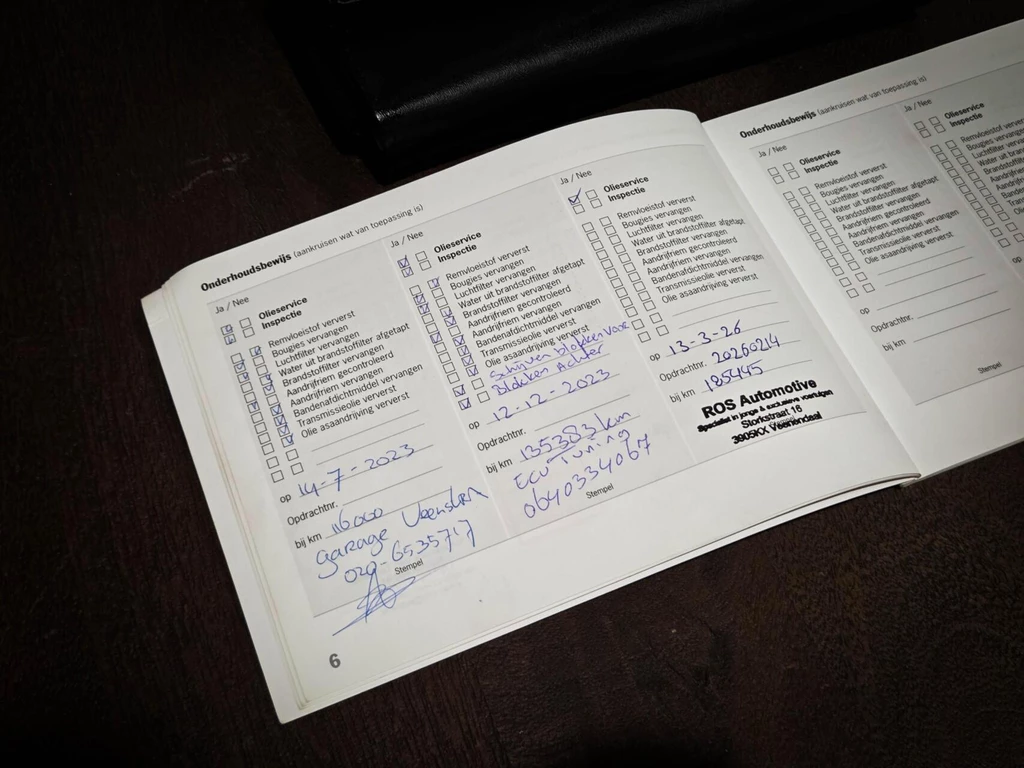 Onderhoudsbewijs (aankruisen wat van toepassing is)
Ja / Nee
Olieservice
Inspectie
Remvloeistof ververst
Bougies vervangen
Luchtfilter vervangen
Water uit brandstoffilter afgetapt
Brandstoffilter vervangen
Aandrijfriem gecontroleerd
Aandrijfriem vervangen
Bandenafdichtmiddel vervangen
Transmissieolie ververst
Olie asaandrijving ververst
op 14-7-2023
Opdrachtnr.
bij km 116000
garage Veenstra
020-6535717
Stempel
Ja / Nee
Olieservice
Inspectie
Remvloeistof ververst
Bougies vervangen
Luchtfilter vervangen
Water uit brandstoffilter afgetapt
Brandstoffilter vervangen
Aandrijfriem gecontroleerd
Aandrijfriem vervangen
Bandenafdichtmiddel vervangen
Transmissieolie ververst
Olie asaandrijving ververst
Schijven blokken Voor
Blokken Achter
op 12-12-2023
Opdrachtnr.
bij km 135383km
ECU Tuning
0640334067
Stempel
Ja / Nee
Olieservice
Inspectie
Remvloeistof ververst
Bougies vervangen
Luchtfilter vervangen
Water uit brandstoffilter afgetapt
Brandstoffilter vervangen
Aandrijfriem gecontroleerd
Aandrijfriem vervangen
Bandenafdichtmiddel vervangen
Transmissieolie ververst
Olie asaandrijving ververst
op 13-3-26
Opdrachtnr. 20260214
bij km 185445
ROS Automotive
Specialist in jonge & exclusieve voertuigen
Storkstraat 16
3905KX Veenendaal
6
Onderhoudsbewijs (aankruisen wat van toepassing is)
Ja / Nee
Olieservice
Inspectie
Remvloeistof ververst
Bougies vervangen
Luchtfilter vervangen
Water uit brandstoffilter afgetapt
Brandstoffilter vervangen
Aandrijfriem gecontroleerd
Aandrijfriem vervangen
Bandenafdichtmiddel vervangen
Transmissieolie ververst
Olie asaandrijving ververst
op
Opdrachtnr.
bij km
Stempel
Ja / Nee
Olieservice
Inspectie
Remvloeistof
Bougies
Luchtfilter
Water uit
op